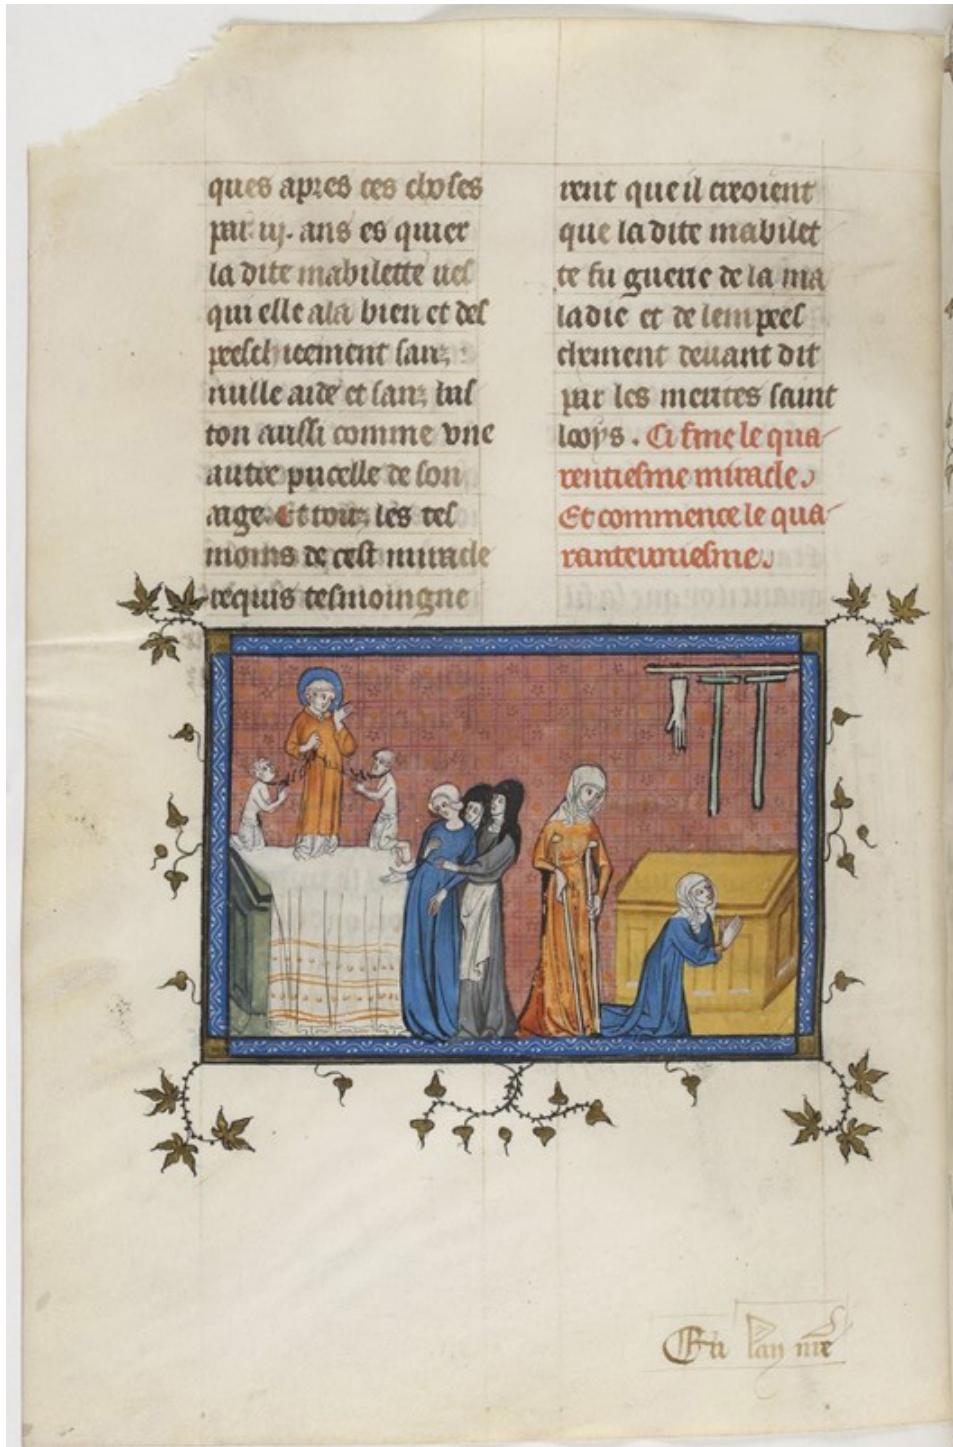 ques apres ces choses
par .iij. ans es quiex
la dite mabilete ues
qui elle ala bien et des
peeschieement sanz
nulle aide et sanz bas
ton aussi comme vne
autre pucelle de son
aage. Et touz les tes
moins de cest miracle
requis tesmoingne
rent que il creoient
que la dite mabilet
te fu guerie de la ma
ladie et de lempees
chement deuant dit
par les merites saint
looys. Ci fine le qua
rentiesme miracle.
Et commence le qua
ranteuniesme.
En lan nre